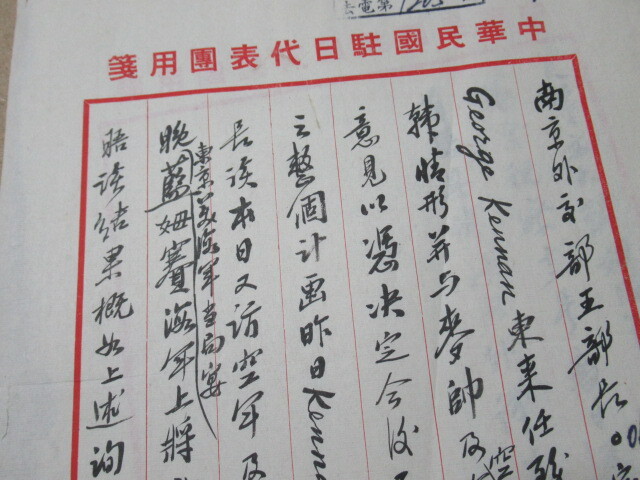 去電第
中華民國駐日代表團用箋
南京外交部王部長
George Kennan東來任
韓情形并与麥帥及
意見以憑決定今後
之整個計画昨日Kenn
長談本日又訪空軍及
東京美海軍當局宴
晚藍姆賽海軍上將
晤談結果概如上述詢